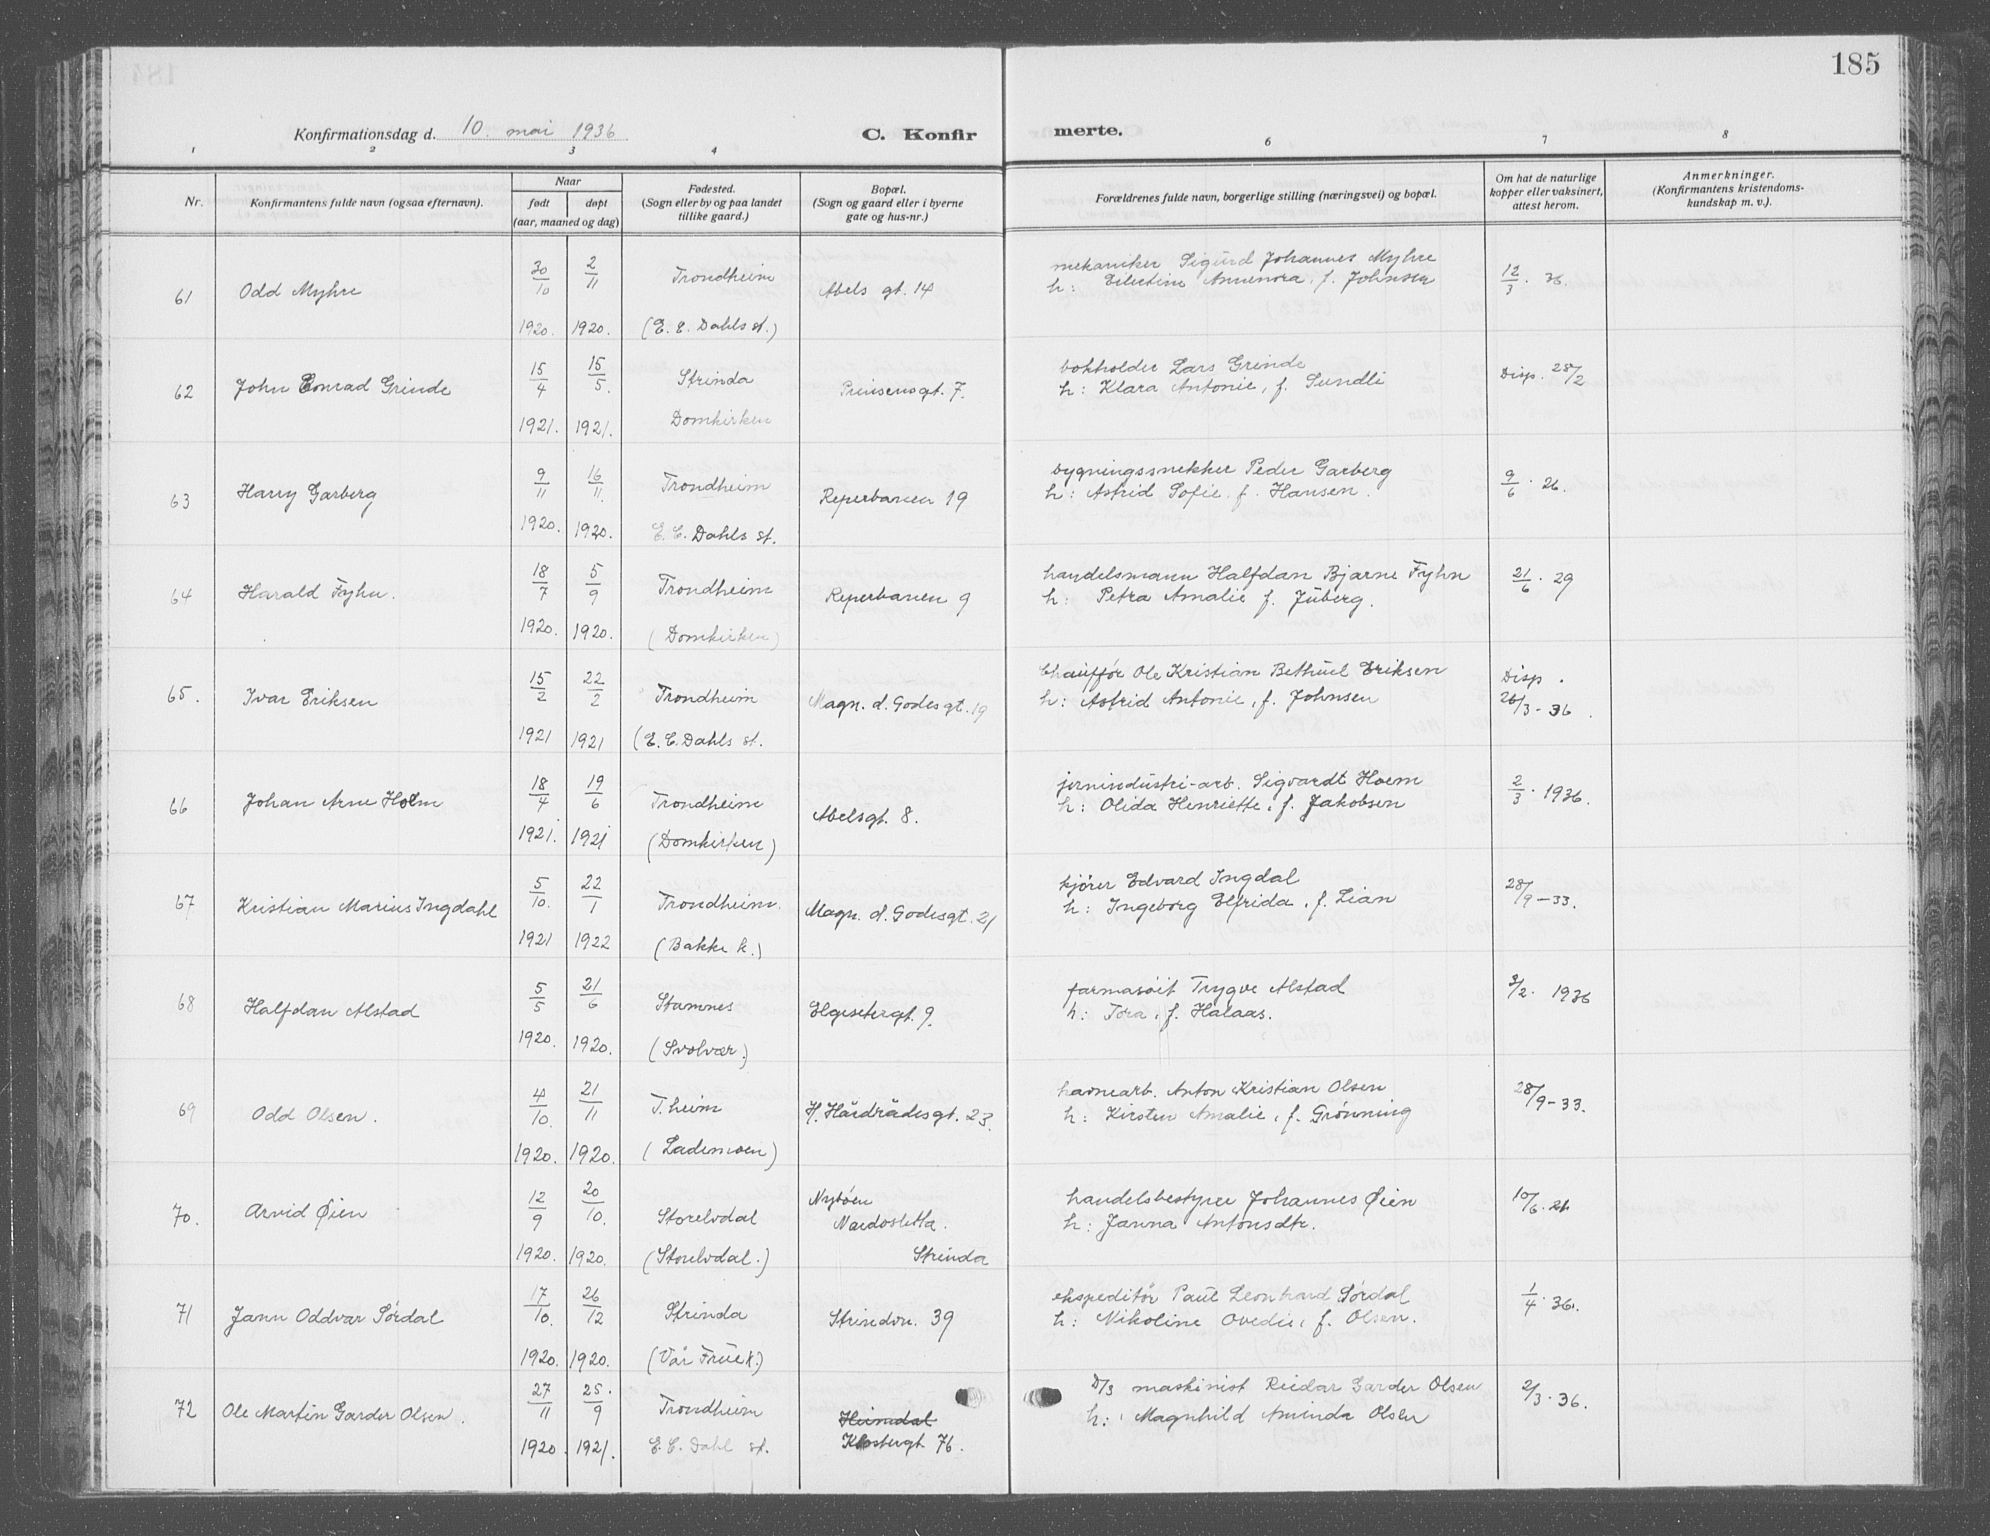 185
Konfirmationsdag d. 10. mai 1936
C. Konfir merte.
1 2 3 4 6 7 8
Nr.
Konfirmantens fulde navn (ogsaa efternavn).
Naar
født døpt
(aar, maaned og dag)
Fødested.
(Sogn eller by og paa landet
tillike gaard.)
Bopæl.
(Sogn og gaard eller i byerne
gate og hus-nr.)
Forældrenes fulde navn, borgerlige stilling (næringsvei) og bopæl.
Om hat de naturlige
kopper eller vaksinert,
attest herom.
Anmerkninger.
(Konfirmantens kristendoms-
kundskap m. v.).
61 Odd Myhre 30/10 1920. 2/11 1920. Trondheim (E. C. Dahls st.) Abels gt. 14
mekaniker Sigurd Johannes Myhre
h: Eilertine Annenora, f. Johnsen
12/3. 36.
62 John Conrad Grinde 15/4 1921. 15/5. 1921. Strinda Domkirken Prinsensgt. 7.
bokholder Lars Grinde
h: Klara Antonie, f. Sundli
Disp. 28/2
63 Harry Garberg 9/11 1920. 16/11. 1920. Trondheim E. C. Dahls st. Reperbanen 19
bygningssnekker Peder Garberg
h: Astrid Sofie, f. Hansen.
9/6. 26.
64 Harald Fyhn. 18/7 1920. 5/9 1920. Trondheim (Domkirken) Reperbanen 9
handelsmann Halfdan Bjarne Fyhn
h: Petra Amalie f. Juberg.
21/6. 29
65. Ivar Eriksen 15/2 1921 22/2 1921 Trondheim (E. C. Dahls st. Magn. d. Godesgt. 19
Chauffør Ole Kristian Bethuel Eriksen
h: Astrid Antonie, f. Johnsen
Disp. 26/3 - 36.
66 Johan Arne Hoem 18/4 1921. 19/6 1921 Trondheim (Domkirken) Abelsgt. 8.
jernindustri-arb. Sigvardt Hoem
h: Olida Henriette, f. Jakobsen
2/3. 1936.
67 Kristian Marius Ingdahl 5/10. 1921 22/1 1922 Trondheim. (Bakke k.) Magn. d. Godesgt. 21
kjører Edvard Ingdal
h: Ingeborg Elfrida, f. Lian
28/9 - 33.
68 Halfdan Alstad 5/5 1920. 21/6 1920. Stamnes (Svolvær.) Elgesetergt. 9.
farmasøit Trygve Alstad
h: Tora, f. Halaas.
3/2. 1936
69 Odd Olsen. 4/10. 1920. 21/11 1920. T.heim (Lademoen) H. Hårdrådesgt. 23.
havnearb. Anton Kristian Olsen
h: Kirsten Amalie, f. Grønning
28/9 - 33.
70. Arvid Øien 12/9 1920. 20/10. 1920. Storelvdal (Storelvdal.) Nybøen
Nardosletta.
Strinda
handelsbestyrer Johannes Øien
h: Janna Antonsdtr.
10/6. 21.
71 Jann Oddvar Sørdal 17/10. 1920. 26/12 1920. Strinda (Vår Frue k.) Strindvn. 39
ekspeditør Paul Leonhard Sørdal
h: Nikoline Ovedie, f. Olsen.
1/4. 36.
72 Ole Martin Garder Olsen. 27/11 1920. 25./9 1921. Trondheim E. C. Dahl st. Heimdal
Klostergt. 76.
D/S maskinist Reidar Garder Olsen
h: Magnhild Aminda Olsen
2/3. 36.